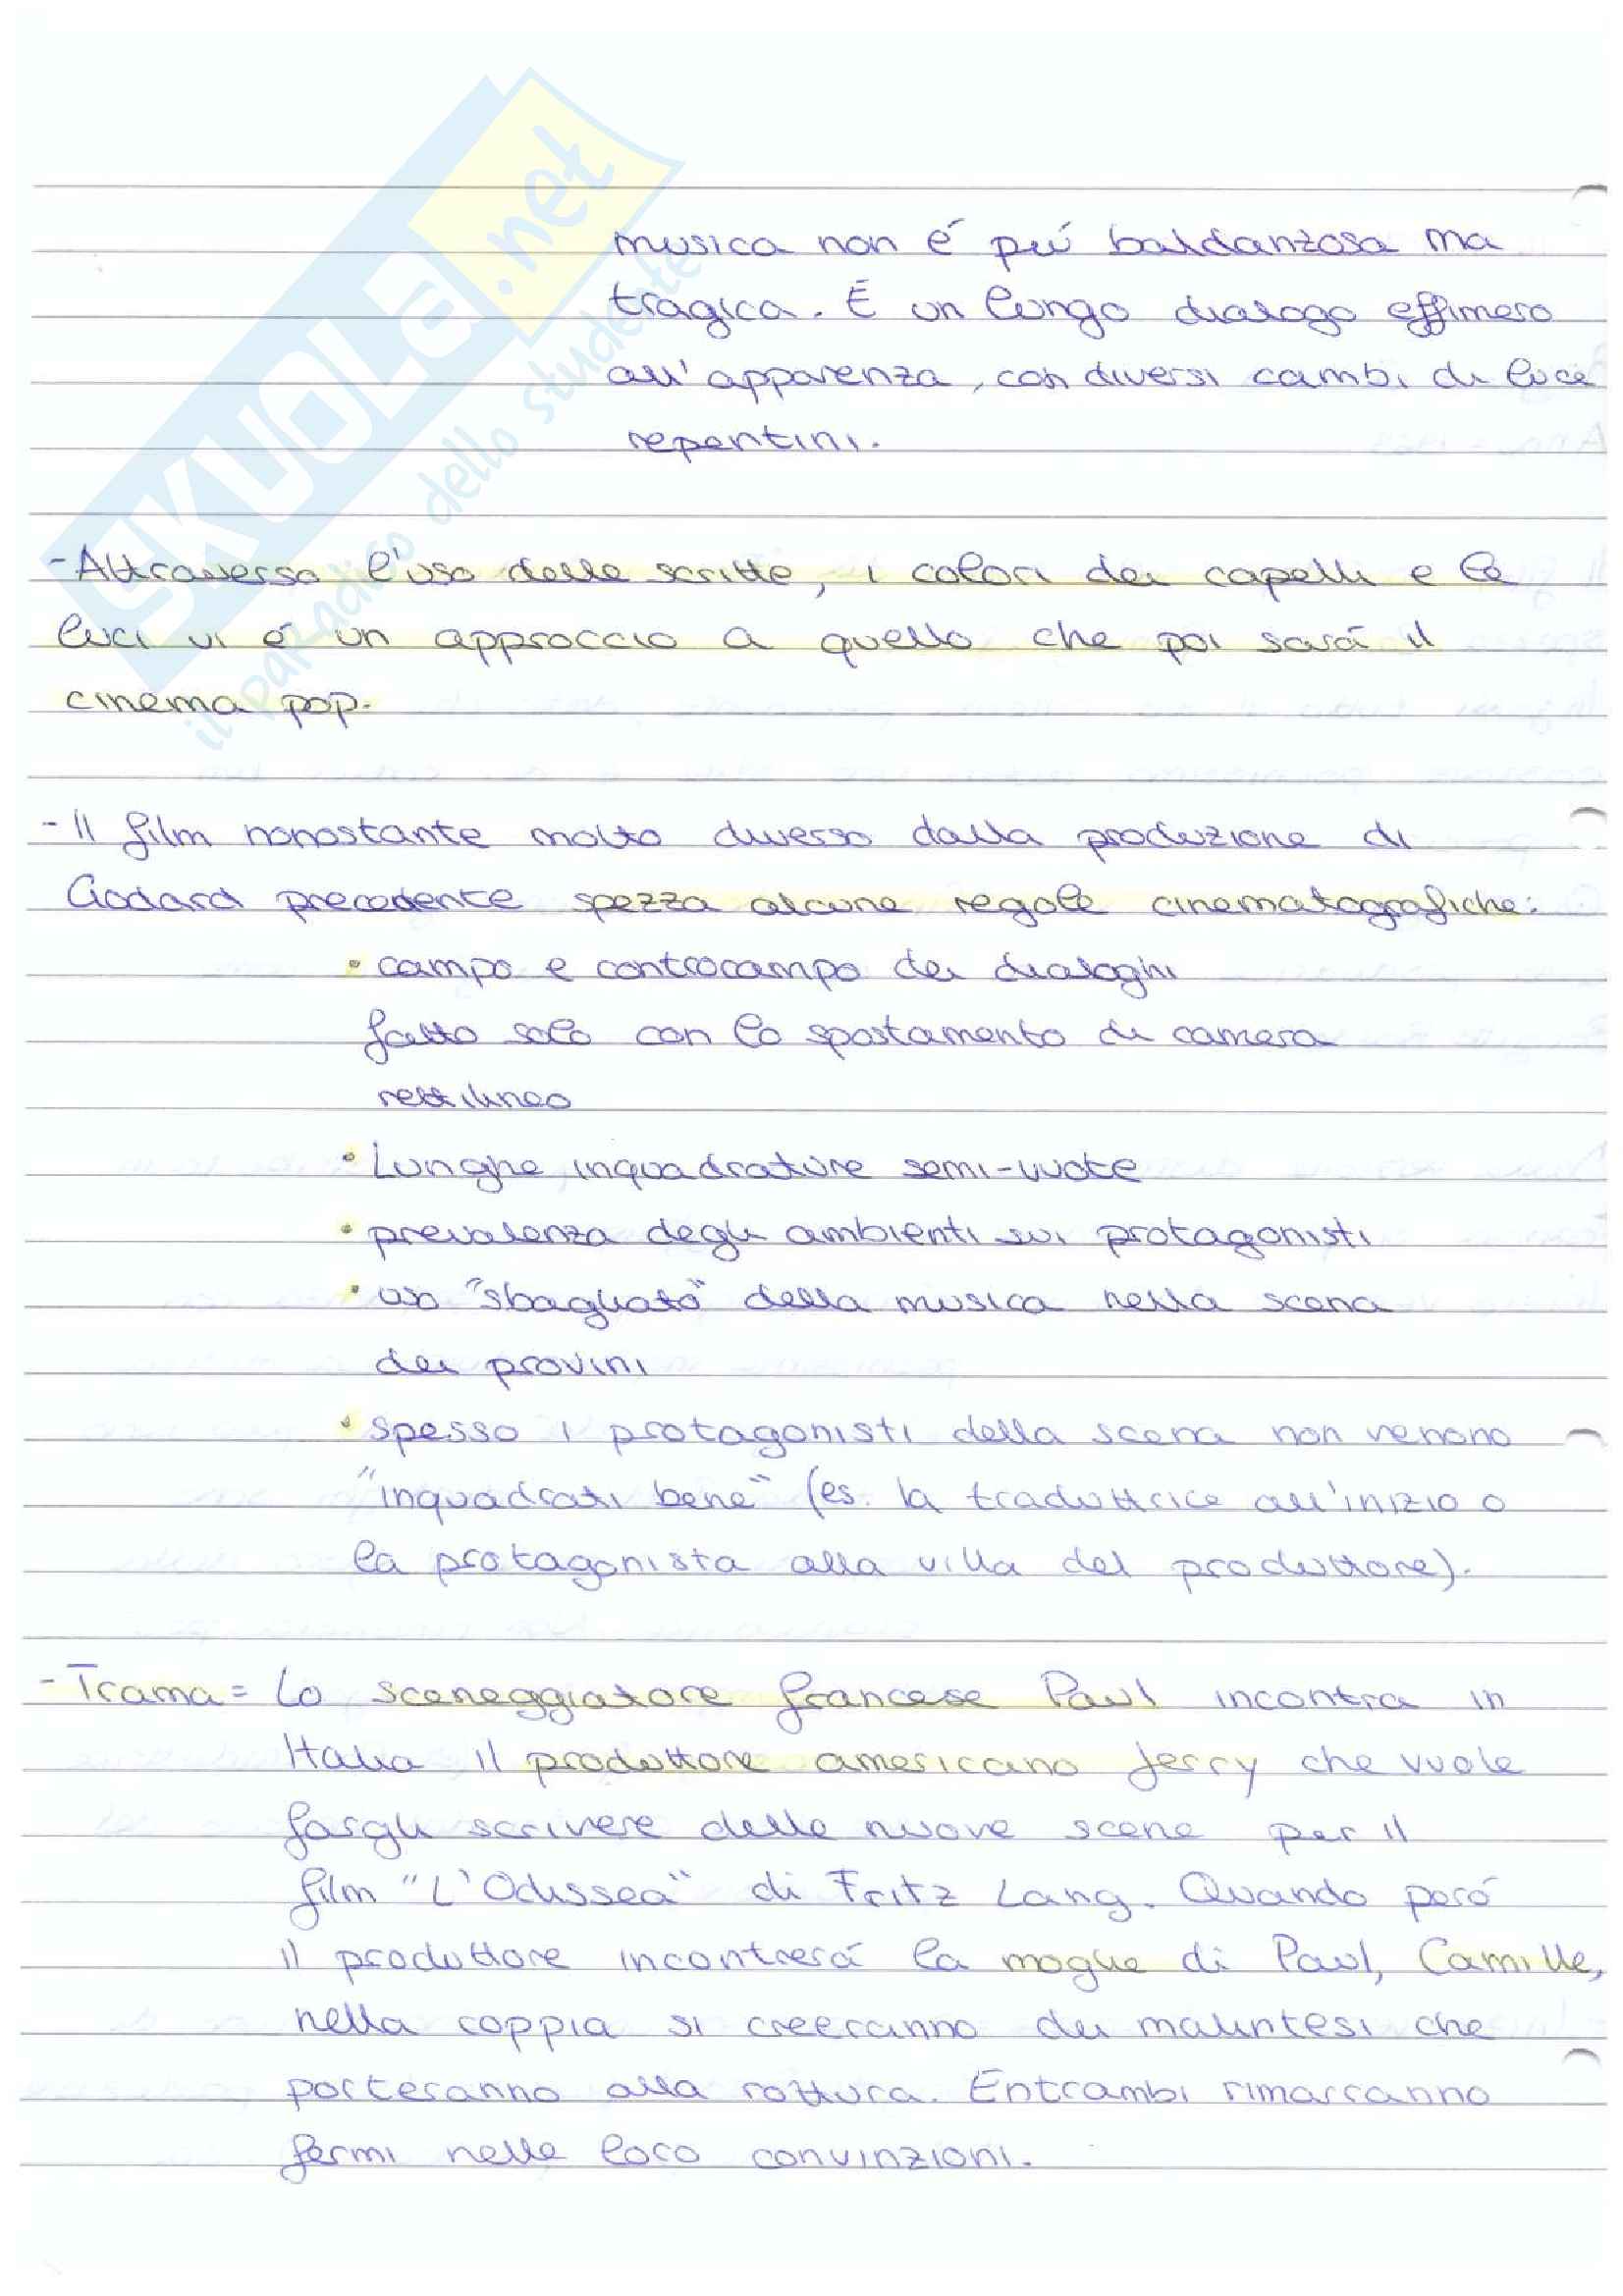 musica non é piú baldanzosa ma
tragica. É un lungo dialogo effimero
all'apparenza, con diversi cambi di luce
repentini.
- Attraverso l'uso delle scritte, i colori dei capelli e le
luci vi é un approccio a quello che poi sará il
cinema pop.
- Il film nonostante molto diverso dalla produzione di
Godard precedente spezza alcune regole cinematografiche:
• campo e controcampo dei dialoghi
fatto solo con lo spostamento di camera
rettilineo
• Lunghe inquadrature semi-vuote
• prevalenza degli ambienti sui protagonisti
• uso "sbagliato" della musica nella scena
dei provini
• spesso i protagonisti della scena non venono
"inquadrati bene" (es. la traduttrice all'inizio o
la protagonista alla villa del produttore).
- Trama = Lo sceneggiatore francese Paul incontra in
Italia il produttore americano Jerry che vuole
fargli scrivere delle nuove scene per il
film "L'Odissea" di Fritz Lang. Quando peró
il produttore incontrerá la moglie di Paul, Camille,
nella coppia si creeranno dei malintesi che
porteranno alla rottura. Entrambi rimarranno
fermi nelle loro convinzioni.
SKUOLA.net
il paradiso dello studente